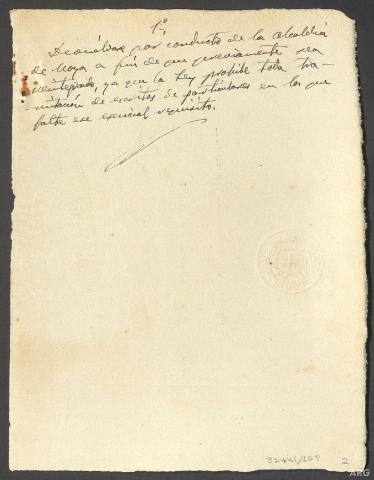 1º
Devuélvase por conducto de la Alcaldía
de Moya a fin de que previamente sea
reintegrado, ya que la Ley prohibe toda tra-
mitación de escritos de particulares en los que
falte ese esencial requisito.
32441/109 2
ARG